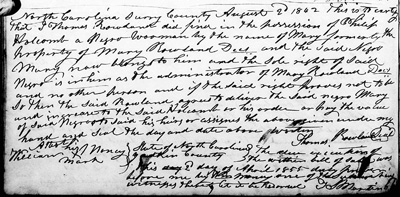 North Carolina Surry County August 2d 1842 This is to certify
that I Thomas Rowland did find in the Possession of Philip
Holcomb a Negro Woman by the name of Mary formerly the
Property of Mary Rowland Decd and the Said Negro
Mary now belongs to him and the Sole right of Said
Negro is in him as the administrator of Mary Rowland Decd
and no other person and if the Said right proves not to be
So then the Said Rowland agrees to deliver the Said negro Mary
and increase to the Said Holcomb or his order or pay the value
of Said Negro to Said his heirs or assigns the above given under my
hand and Seal the day and date above written
Attest Thomas Rowland Seal
William his Nancy State of North Carolina The due execution of
mark Yadkin County The within bill of Sale was
this day 2d of April 1855
before me by
witness thereto let it be Recorded